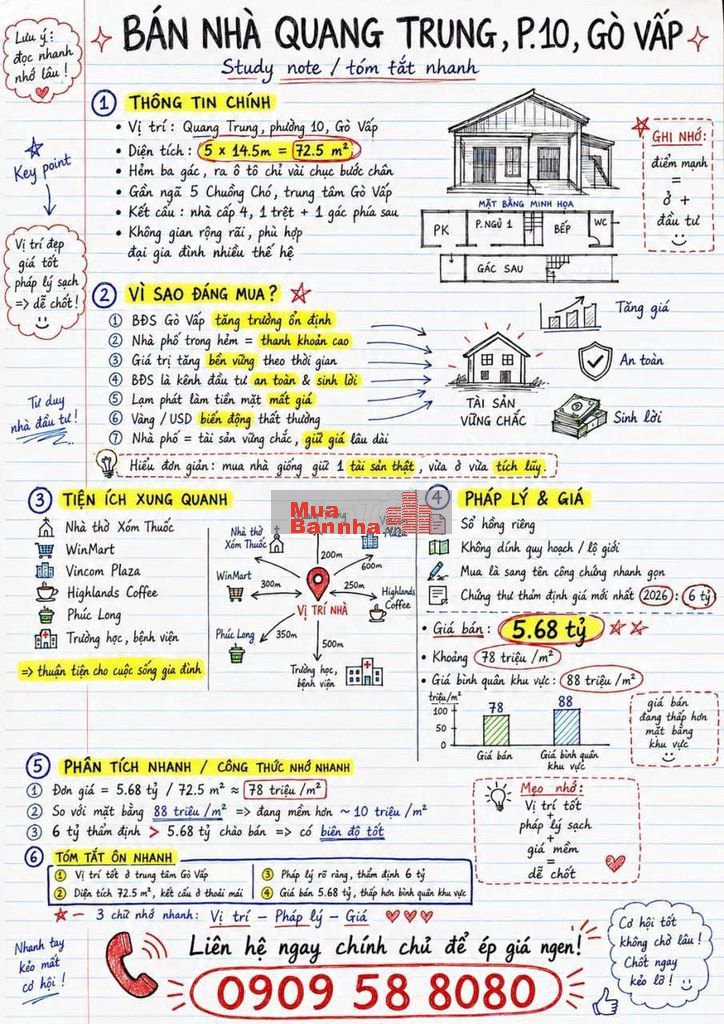 Lưu ý:
đọc nhanh
nhớ lâu!
BÁN NHÀ QUANG TRUNG, P.10, GÒ VẤP
Study note / tóm tắt nhanh
Key point
Vị trí đẹp
giá tốt
pháp lý sạch
=> dễ chốt!
1 THÔNG TIN CHÍNH
• Vị trí: Quang Trung, phường 10, Gò Vấp
• Diện tích: 5 x 14.5m = 72.5 m²
• Hẻm ba gác, ra ô tô chỉ vài chục bước chân
• Gần ngã 5 Chuồng Chó, trung tâm Gò Vấp
• Kết cấu: nhà cấp 4, 1 trệt + 1 gác phía sau
• Không gian rộng rãi, phù hợp
đại gia đình nhiều thế hệ
MẶT BẰNG MINH HỌA
PK
P.NGỦ 1
BẾP
WC
GÁC SAU
GHI NHỚ:
điểm mạnh
=
ở +
đầu tư
2 VÌ SAO ĐÁNG MUA?
1 BĐS Gò Vấp tăng trưởng ổn định
2 Nhà phố trong hẻm = thanh khoản cao
3 Giá trị tăng bền vững theo thời gian
4 BĐS là kênh đầu tư an toàn & sinh lời
5 Lạm phát làm tiền mặt mất giá
6 Vàng / USD biến động thất thường
7 Nhà phố = tài sản vững chắc, giữ giá lâu dài
Hiểu đơn giản: mua nhà giống giữ 1 tài sản thật, vừa ở vừa tích lũy.
TÀI SẢN
VỮNG CHẮC
Tăng giá
An toàn
Sinh lời
Tư duy
nhà đầu tư!
3 TIỆN ÍCH XUNG QUANH
Nhà thờ Xóm Thuốc
WinMart
Vincom Plaza
Highlands Coffee
Phúc Long
Trường học, bệnh viện
=> thuận tiện cho cuộc sống gia đình
Mua
Bannha
Nhà thờ
Xóm Thuốc
200m
600m
WinMart
300m
250m
Highlands
Coffee
VỊ TRÍ NHÀ
Phúc Long
350m
500m
Trường học,
bệnh viện
4 PHÁP LÝ & GIÁ
Sổ hồng riêng
Không dính quy hoạch / lộ giới
Mua là sang tên công chứng nhanh gọn
Chứng thư thẩm định giá mới nhất 2026: 6 tỷ
• Giá bán: 5.68 tỷ
• Khoảng 78 triệu/m²
• Giá bình quân khu vực: 88 triệu/m²
triệu/m²
100
50
0
78
88
Giá bán
Giá bình quân
khu vực
giá bán
đang thấp hơn
mặt bằng
khu vực
5 PHÂN TÍCH NHANH / CÔNG THỨC NHỚ NHANH
1 Đơn giá = 5.68 tỷ / 72.5 m² ≈ 78 triệu/m²
2 So với mặt bằng 88 triệu/m² => đang mềm hơn ~ 10 triệu/m²
3 6 tỷ thẩm định > 5.68 tỷ chào bán => có biên độ tốt
Mẹo nhớ:
Vị trí tốt
+
pháp lý sạch
+
giá mềm
=
dễ chốt
6 TÓM TẮT ÔN NHANH
1 Vị trí tốt ở trung tâm Gò Vấp
2 Diện tích 72.5 m², kết cấu ở thoải mái
3 Pháp lý rõ ràng, thẩm định 6 tỷ
4 Giá bán 5.68 tỷ, thấp hơn bình quân khu vực
3 chữ nhớ nhanh: Vị trí – Pháp lý – Giá
Nhanh tay
kẻo mất
cơ hội!
Liên hệ ngay chính chủ để ép giá ngen!
0909 58 8080
Cơ hội tốt
không chờ lâu!
Chốt ngay
kẻo lỡ!